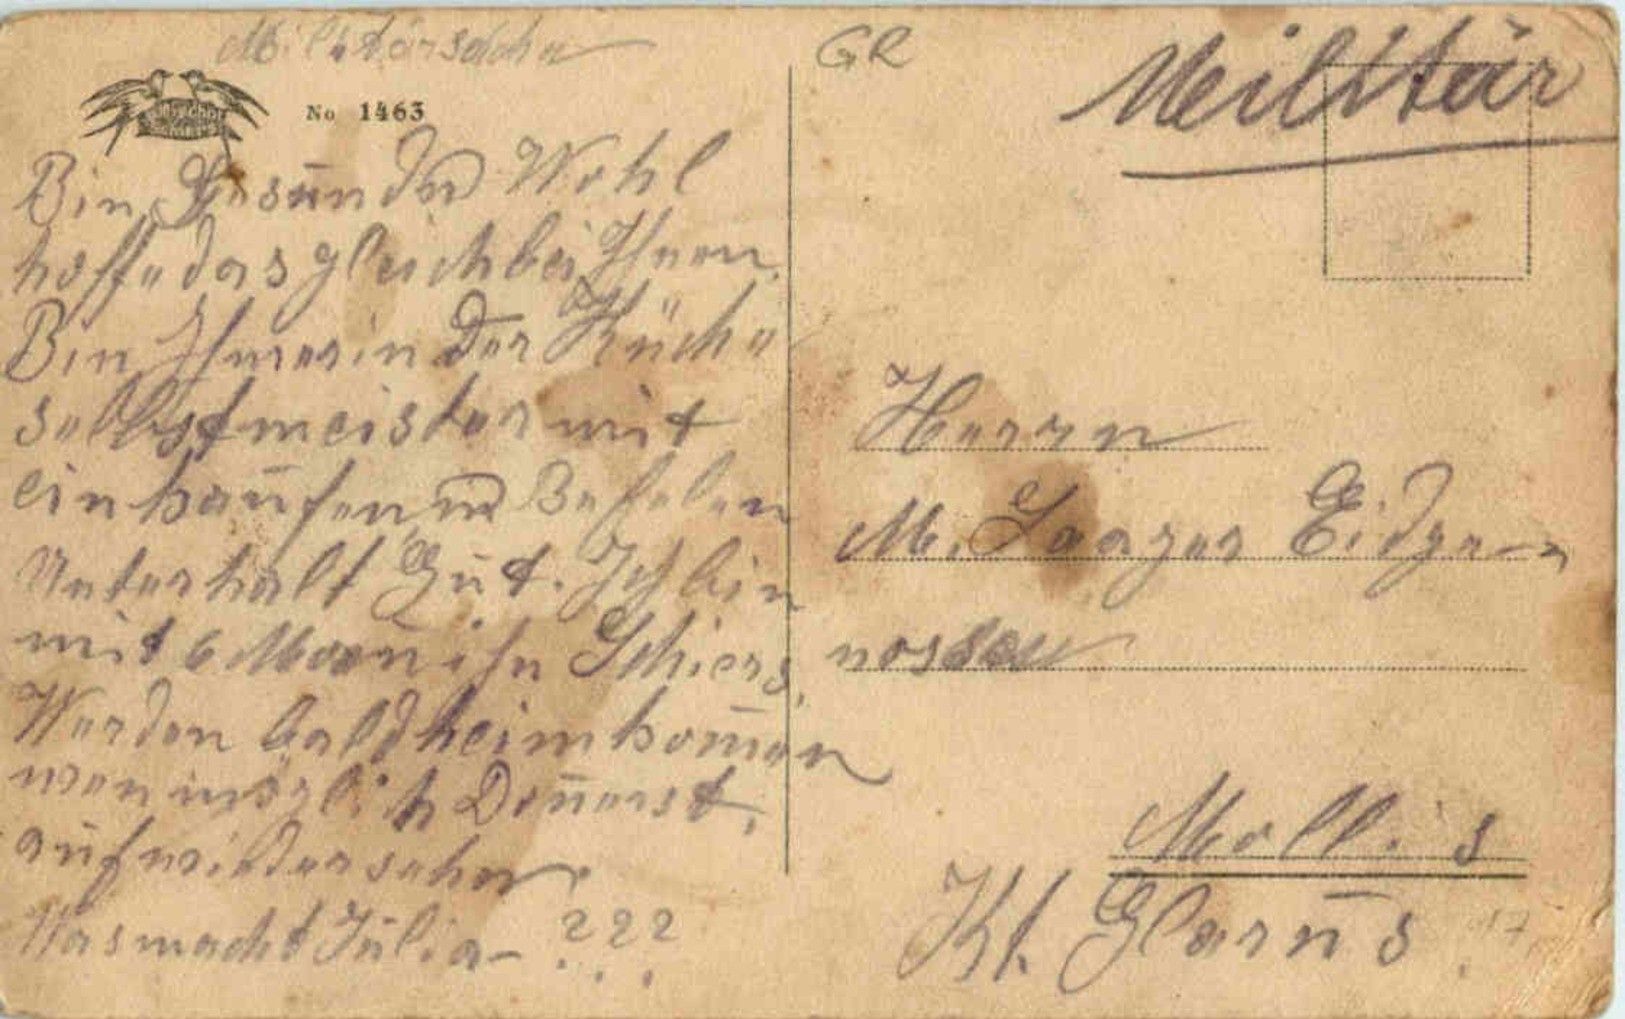 Militärsache
No 1463
Bin Gesund u Wohl
hoffe das gleich bei Ihnen.
Bin Imer in der Küche
selbstmeister mit
ein haufen Befelen
Unterhalt Gut. Ich bin
mit 6 Mann ihn Schiers,
Werden bald heim komen
wen möglich Donerst.
auf wiedersehen.
Was macht Julia - ???
GR
Militär
Herrn
M. Laager Eidge-
nossen
Mollis
Kt. Glarus.